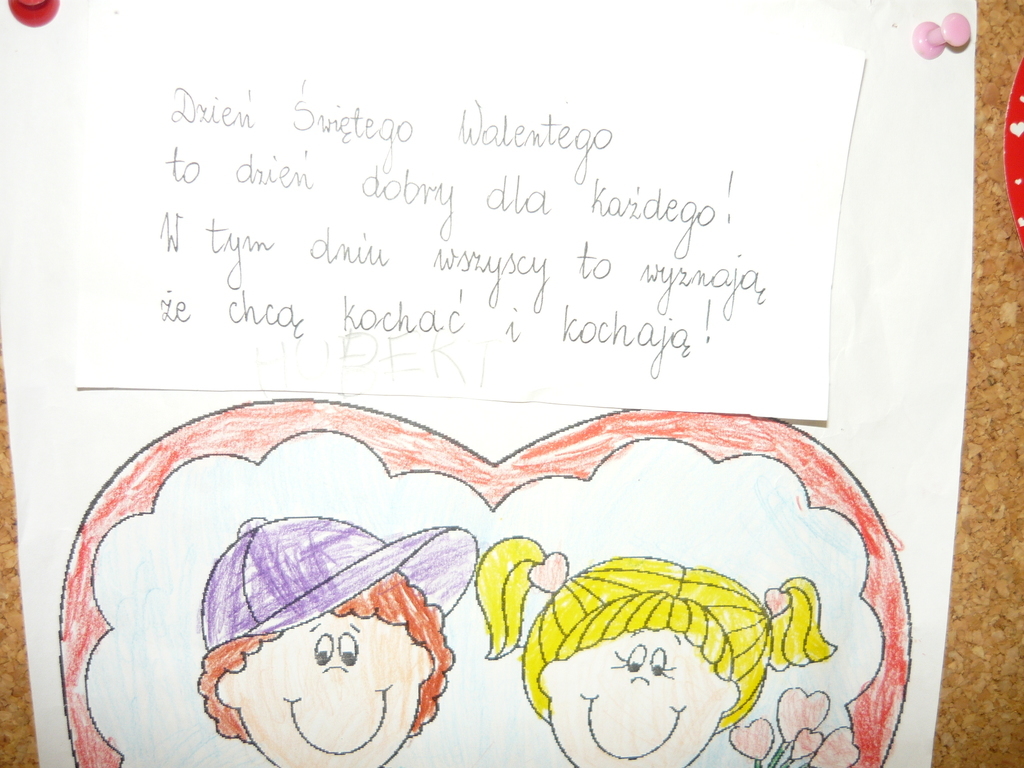 Dzień Świętego Walentego
to dzień dobry dla każdego!
W tym dniu wszyscy to wyznają
że chcą kochać i kochają!
HUBERT